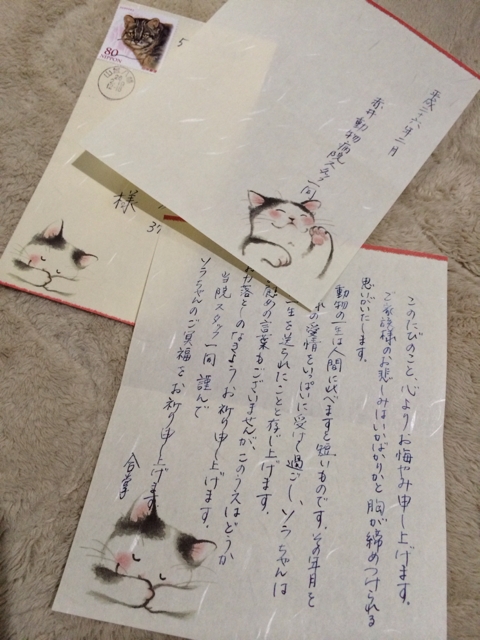 このたびのこと、心よりお悔やみ申し上げます。
ご家族様のお悲しみはいかばかりかと胸が締めつけられる
思いがいたします。
動物の一生は人間に比べますと短いものです。その年月を
れの愛情をいっぱいに受けて過ごし、ソラちゃんは
一生を送られたことと存じ上げます。
慰めの言葉もございませんが、このうえはどうか
力落としのなきようお祈り申し上げます。
当院スタッフ一同 謹んで
ソラちゃんのご冥福をお祈り申し上げます。
合掌
平成二十六年二月
赤井動物病院スタッフ一同
80
NIPPON
様